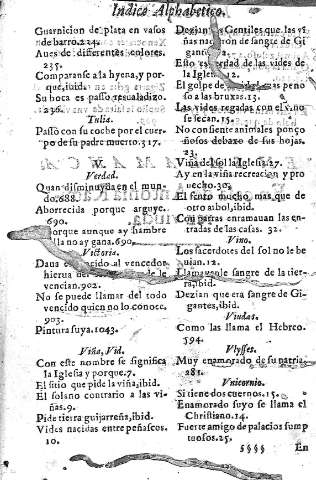 Indice Alphabetico.
Guarnicion de plata en vasos
de barro.224.
Aues de differentes colores.
235.
Comparanse a la hyena, y por
que, ibid.
Su boca es passo resualadizo.
236.
Tulia.
Passò con su coche por el cuer
po de su padre muerto.317.
V.
Verdad.
Quan disminuyda en el mun-
do.688.
Aborrecida porque arguye.
690.
Porque aunque ay hambre
no ay gana.690.
Victoria.
al vencedor
hierua de le
vencian.902.
No se puede llamar del todo
vencido quien no lo conoce.
903.
Pintura suya.1043.
Viña, Vid.
Con este nombre se significa
la Iglesia y porque.7.
El sitio que pide la viña, ibid.
El solano contrario a las vi-
ñas.9.
Pide tierra guijarreña, ibid.
Vides nacidas entre peñascos.
10.
Dezian Gentiles que las vi-
ñas de sangre de Gi
Esto verdad de las vides de
la Iglesia.12.
El golpe de peno
so a las bruxas.13.
Las vides regadas con vino
se secan.15.
No consiente animales ponço
ñosos debaxo de sus hojas.
23.
Viña del sol la Iglesia.27.
Ay en la viña recreacion y pro
uecho.30.
El fento mucho mas que de
otro olvido.
Con parras enramauan las en-
tradas de las casas. 32.
Vino.
Los sacerdotes del sol no le be
uian.12.
Llamauanle sangre de la tier-
ra, ibid.
Dezian que era sangre de Gi-
gantes, ibid.
Viudas.
Como las llama el Hebreo.
594.
Vlysses.
Muy enamorado de su patria.
281.
Vnicornio.
Si tiene dos cuernos.15.
Enamorado suyo se llama el
Christiano.14.
Fuerte amigo de palacios sump
tuosos.25.
§§§§ En